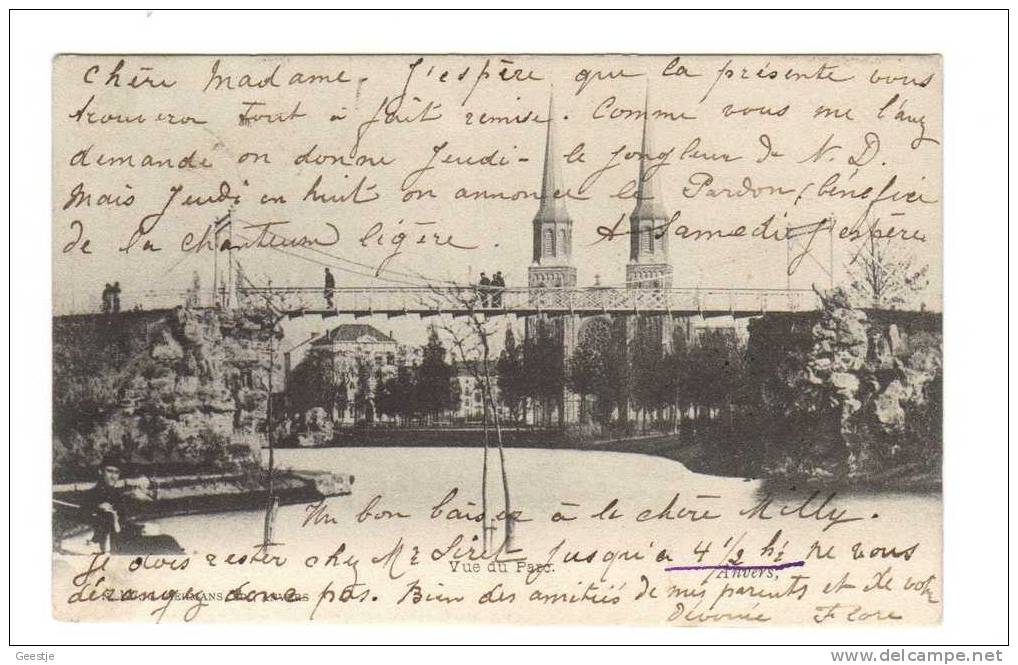 Chère Madame. J'espère que la présente vous
trouvera tout à fait remise. Comme vous me l'avez
demandé on donne Jeudi - le Jongleur de N. D.
Mais Jeudi en huit on annonce le Pardon, bénéfice
de la chanteuse légère. A Samedi j'espère
Un bon baiser à la chère Milly.
Je dois rester chez Mr Siret jusqu'à 4 1/2 h: ne vous
Vue du Parc.
Anvers,
dérangez donc pas. Bien des amitiés de mes parents et de votre
HERMANS, ANVERS
dévouée Flore
Geestje
www.delcampe.net